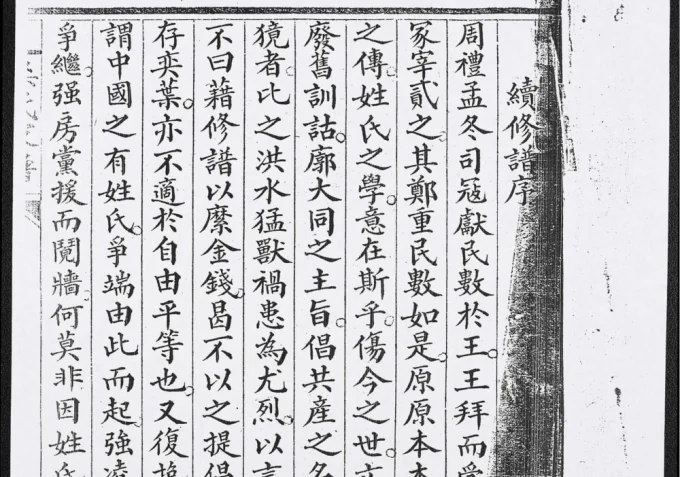 續修譜序
周禮孟冬司寇獻民數於王。王拜而受
冢宰貳之。其鄭重民數如是。原原本本
之傳。姓氏之學。意在斯乎。傷今之世。
廢舊訓詁。廓大同之主旨。倡共産之名
獍者。比之洪水猛獸禍患為尤烈。以言
不曰藉修譜以縻金錢。曷不以之提倡
存奕葉。亦不適於自由平等也。又復
謂中國之有姓氏。爭端由此而起。強凌
爭繼。强房黨援而鬩牆。何莫非因姓氏